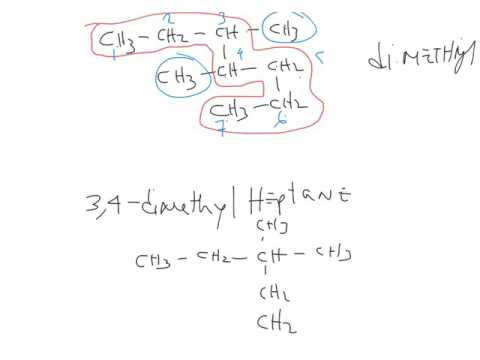 2 3
CH3 – CH2 – CH – CH3
1
4 5
CH3 – CH – CH2
CH3 – CH2
7 6
dimethyl
3,4-dimethyl Heptane
CH3
CH3 – CH2 – CH – CH3
CH2
CH2